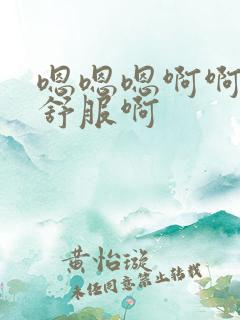 嗯嗯嗯啊啊
舒服啊
黄怡璇
未经同意禁止转载